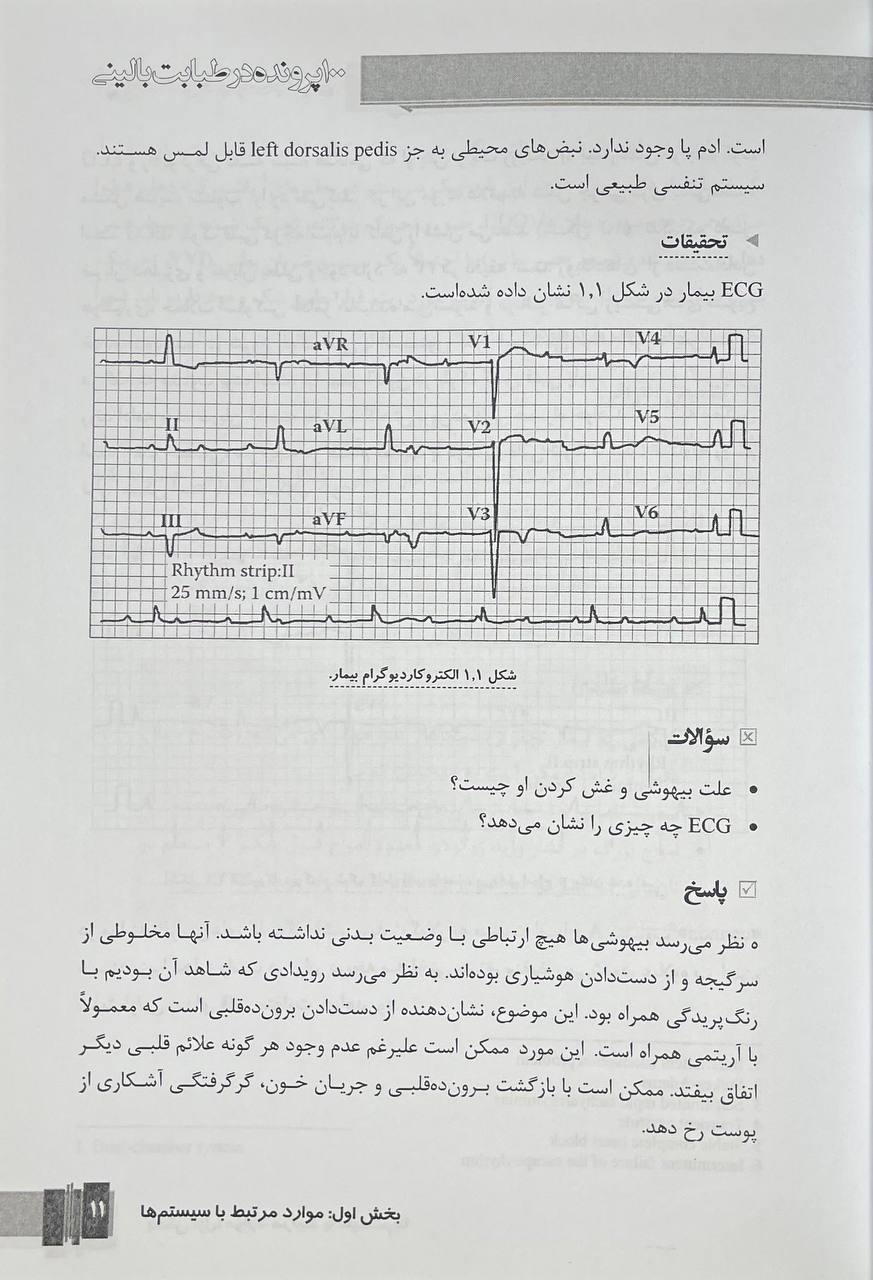 ۱۰۰پرونده در طبابت بالینی
است. ادم پا وجود ندارد. نبض‌های محیطی به جز left dorsalis pedis قابل لمس هستند.
سیستم تنفسی طبیعی است.
تحقیقات
ECG بیمار در شکل ۱,۱ نشان داده شده‌است.
aVR V1 V4
II aVL V2 V5
III aVF V3 V6
Rhythm strip:II
25 mm/s; 1 cm/mV
شکل ۱,۱ الکتروکاردیوگرام بیمار.
سؤالات
• علت بیهوشی و غش کردن او چیست؟
• ECG چه چیزی را نشان می‌دهد؟
پاسخ
ه نظر می‌رسد بیهوشی‌ها هیچ ارتباطی با وضعیت بدنی نداشته باشد. آنها مخلوطی از
سرگیجه و از دست‌دادن هوشیاری بوده‌اند. به نظر می‌رسد رویدادی که شاهد آن بودیم با
رنگ‌پریدگی همراه بود. این موضوع، نشان‌دهنده از دست‌دادن برون‌ده‌قلبی است که معمولاً
با آریتمی همراه است. این مورد ممکن است علیرغم عدم وجود هر گونه علائم قلبی دیگر
اتفاق بیفتد. ممکن است با بازگشت برون‌ده‌قلبی و جریان خون، گرگرفتگی آشکاری از
پوست رخ دهد.
بخش اول: موارد مرتبط با سیستم‌ها ۱۱